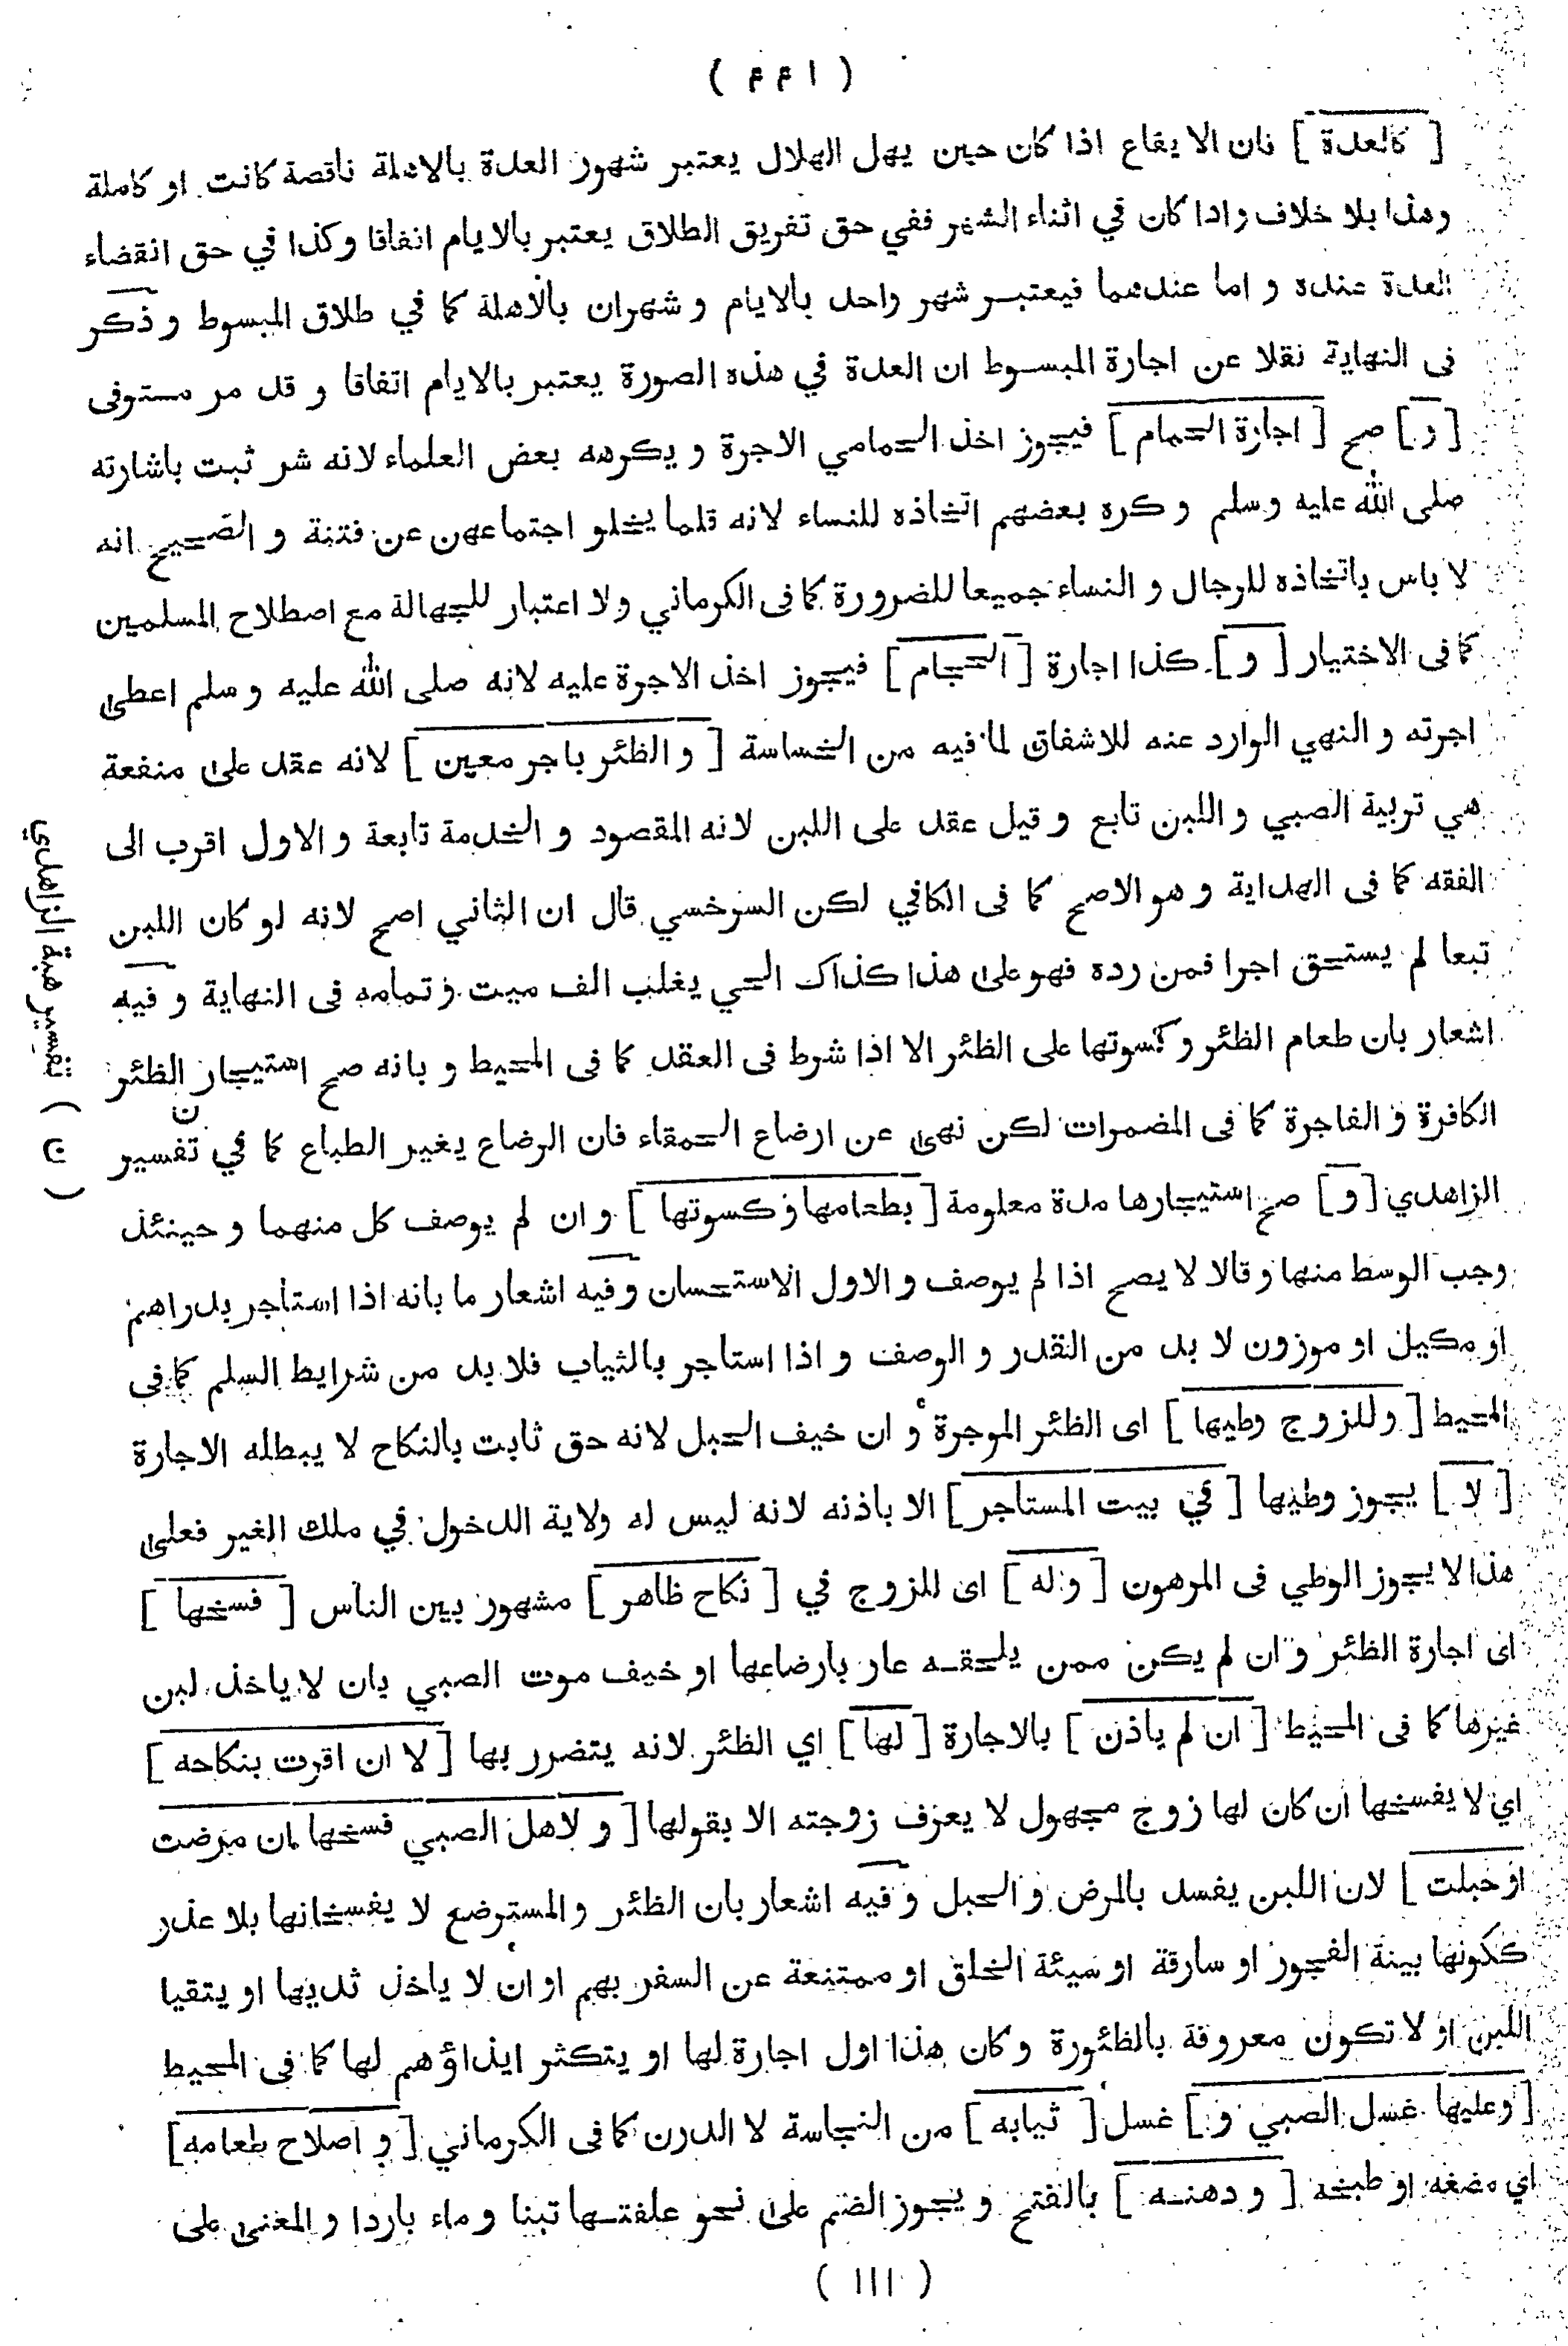 ( ۱۴۴ )
[ كالعدة ] فان الايقاع اذا كان حين يهل الهلال يعتبر شهور العدة بالاهلة ناقصة كانت او كاملة
وهذا بلا خلاف واذا كان في اثناء الشهر ففي حق تفريق الطلاق يعتبر بالايام اتفاقا وكذا في حق انقضاء
العدة عنده و اما عندهما فيعتبر شهر واحد بالايام و شهران بالاهلة كما في طلاق المبسوط و ذكر
فى النهاية نقلا عن اجارة المبسوط ان العدة في هذه الصورة يعتبر بالايام اتفاقا و قد مر مستوفى
[ و ] صح [ اجارة الحمام ] فيجوز اخذ الحمامي الاجرة و يكرهه بعض العلماء لانه شر ثبت باشارته
صلى الله عليه وسلم و كره بعضهم اتخاذه للنساء لانه قلما يخلو اجتماعهن عن فتنة و الصحيح انه
لا باس باتخاذه للرجال و النساء جميعا للضرورة كما فى الكرماني ولا اعتبار للجهالة مع اصطلاح المسلمين
كما فى الاختيار [ و ] كذا اجارة [ الحجام ] فيجوز اخذ الاجرة عليه لانه صلى الله عليه وسلم اعطى
اجرته و النهي الوارد عنه للاشفاق لما فيه من الخساسة [ و الظئر باجر معين ] لانه عقد على منفعة
هي تربية الصبي و اللبن تابع و قيل عقد على اللبن لانه المقصود و الخدمة تابعة و الاول اقرب الى
الفقه كما فى الهداية و هو الاصح كما فى الكافي لكن السرخسي قال ان الثاني اصح لانه لو كان اللبن
تبعا لم يستحق اجرا فمن رده فهو على هذا كذاك الحي يغلب الف ميت و تمامه فى النهاية و فيه
اشعار بان طعام الظئر و كسوتها على الظئر الا اذا شرط فى العقد كما فى المحيط و بانه صح استيجار الظئر
الكافرة و الفاجرة كما فى المضمرات لكن نهى عن ارضاع الحمقاء فان الرضاع يغير الطباع كما في تفسير
الزاهدي [ و ] صح استيجارها مدة معلومة [ بطعامها و كسوتها ] و ان لم يوصف كل منهما و حينئذ
وجب الوسط منها و قالا لا يصح اذا لم يوصف و الاول الاستحسان و فيه اشعار ما بانه اذا استاجر بدراهم
او مكيل او موزون لا بد من القدر و الوصف و اذا استاجر بالثياب فلا بد من شرايط السلم كما فى
المحيط [ و للزوج وطيها ] اى الظئر الموجرة و ان خيف الحبل لانه حق ثابت بالنكاح لا يبطله الاجارة
[ لا ] يجوز وطيها [ في بيت المستاجر ] الا باذنه لانه ليس له ولاية الدخول في ملك الغير فعلى
هذا لا يجوز الوطي فى المرهون [ و له ] اى للزوج في [ نكاح ظاهر ] مشهور بين الناس [ فسخها ]
اى اجارة الظئر و ان لم يكن ممن يلحقه عار بارضاعها او خيف موت الصبي بان لا ياخذ لبن
غيرها كما فى المحيط [ ان لم ياذن ] بالاجارة [ لها ] اي الظئر لانه يتضرر بها [ لا ان اقرت بنكاحه ]
اي لا يفسخها ان كان لها زوج مجهول لا يعرف زوجته الا بقولها [ و لاهل الصبي فسخها ان مرضت
او حبلت ] لان اللبن يفسد بالمرض و الحبل و فيه اشعار بان الظئر و المسترضع لا يفسخانها بلا عذر
ككونها بينة الفجور او سارقة او سيئة الخلق او ممتنعة عن السفر بهم او ان لا ياخذ ثديها او يتقيا
اللبن او لا تكون معروفة بالظئورة و كان هذا اول اجارة لها او يتكثر ايذاؤهم لها كما فى المحيط
[ وعليها غسل الصبي و ] غسل [ ثيابه ] من النجاسة لا الدرن كما فى الكرماني [ و اصلاح طعامه ]
اي مضغه او طبخه [ و دهنه ] بالفتح و يجوز الضم على نحو علفتها تبنا و ماء باردا و المغنى على
( ۱۱۱ )
( ن ) تفسير هبة الزاهدي